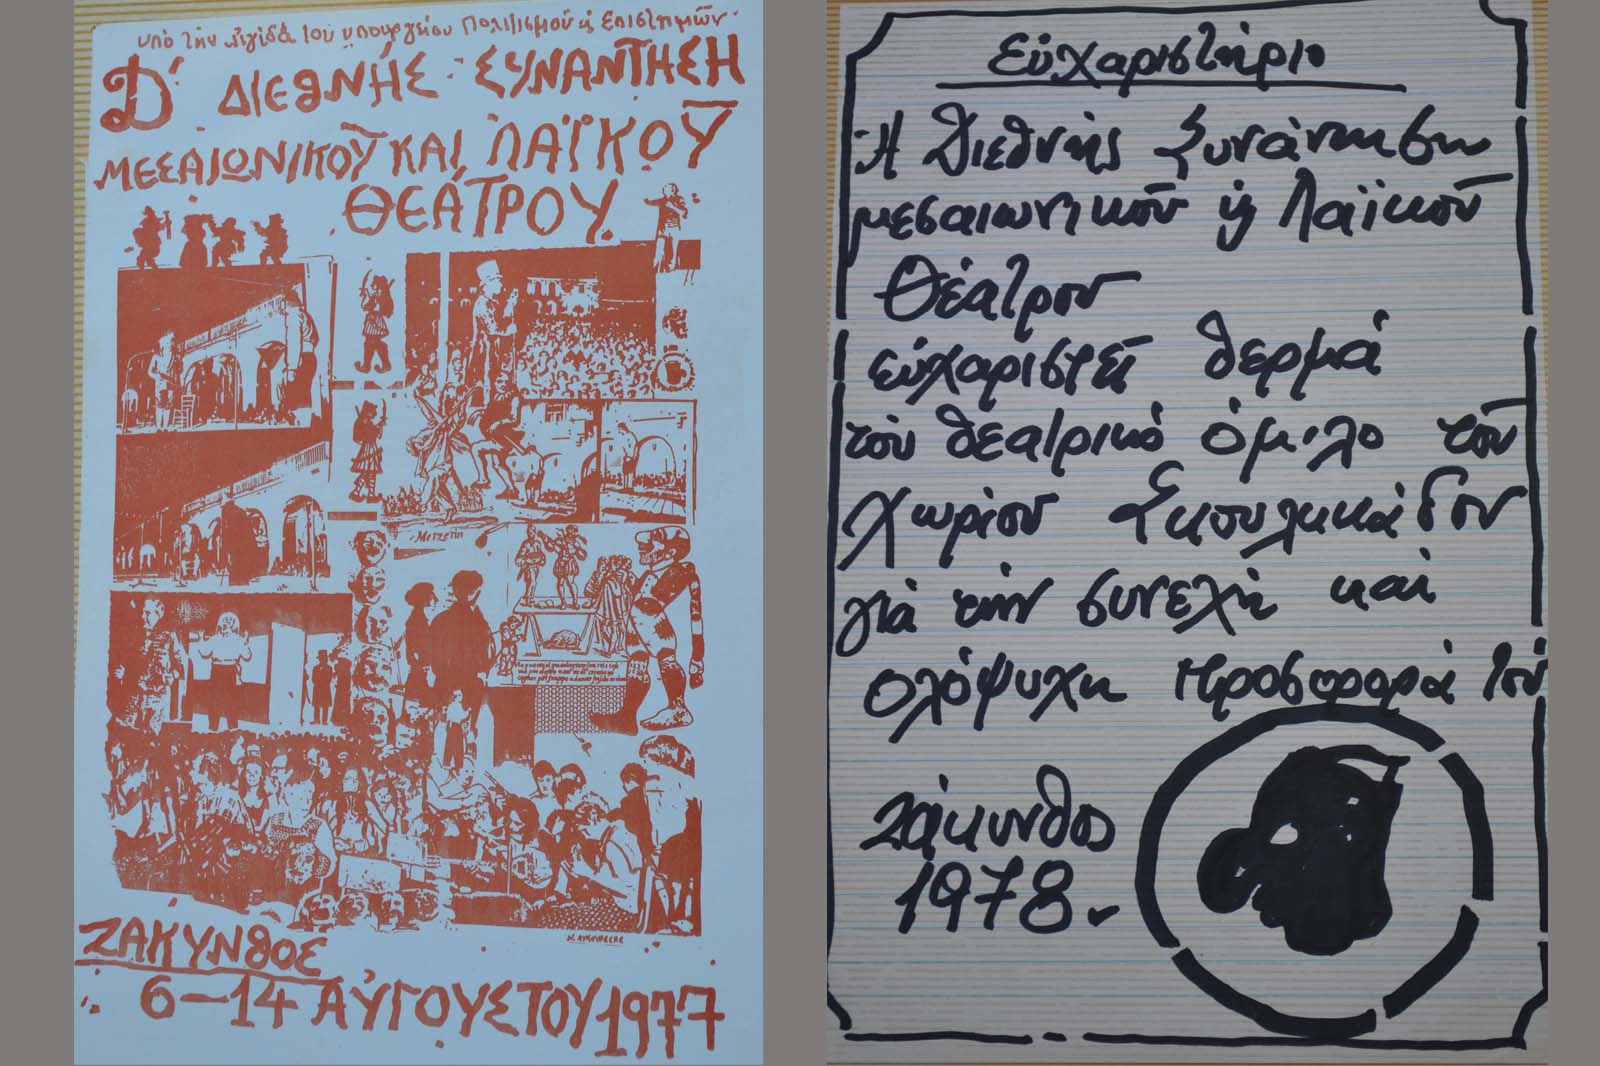 ὑπὸ τὴν αἰγίδα τοῦ ὑπουργείου Πολιτισμοῦ & Ἐπιστημῶν.
Δ' ΔΙΕΘΝΗΣ ΣΥΝΑΝΤΗΣΗ
ΜΕΣΑΙΩΝΙΚΟΥ͂ ΚΑΙ ΛΑΪΚΟΥ͂
ΘΕΆΤΡΟΥ
Metzetin
ΖΑΚΥΝΘΟΣ
6-14 ΑΥΓΟΎΣΤΟΥ 1977
Εὐχαριστήριο
Ἡ Διεθνής Συνάντηση
μεσαιωνικοῦ & Λαϊκοῦ
Θεάτρου
εὐχαριστεῖ θερμά
τόν θεατρικό ὅμιλο τοῦ
Χωρίου Σκουληκάδου
γιά τήν συνεχῆ καί
ολόψυχη προσφορά του
Ζάκυνθος
1978.